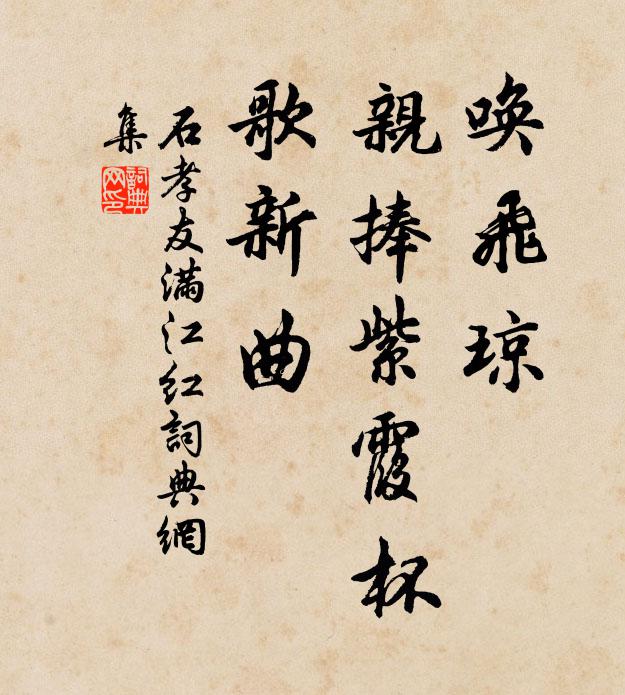 唤飛琼
親捧紫霞杯
歌新曲
石孝友满江红詞典網
集
詞典
网印